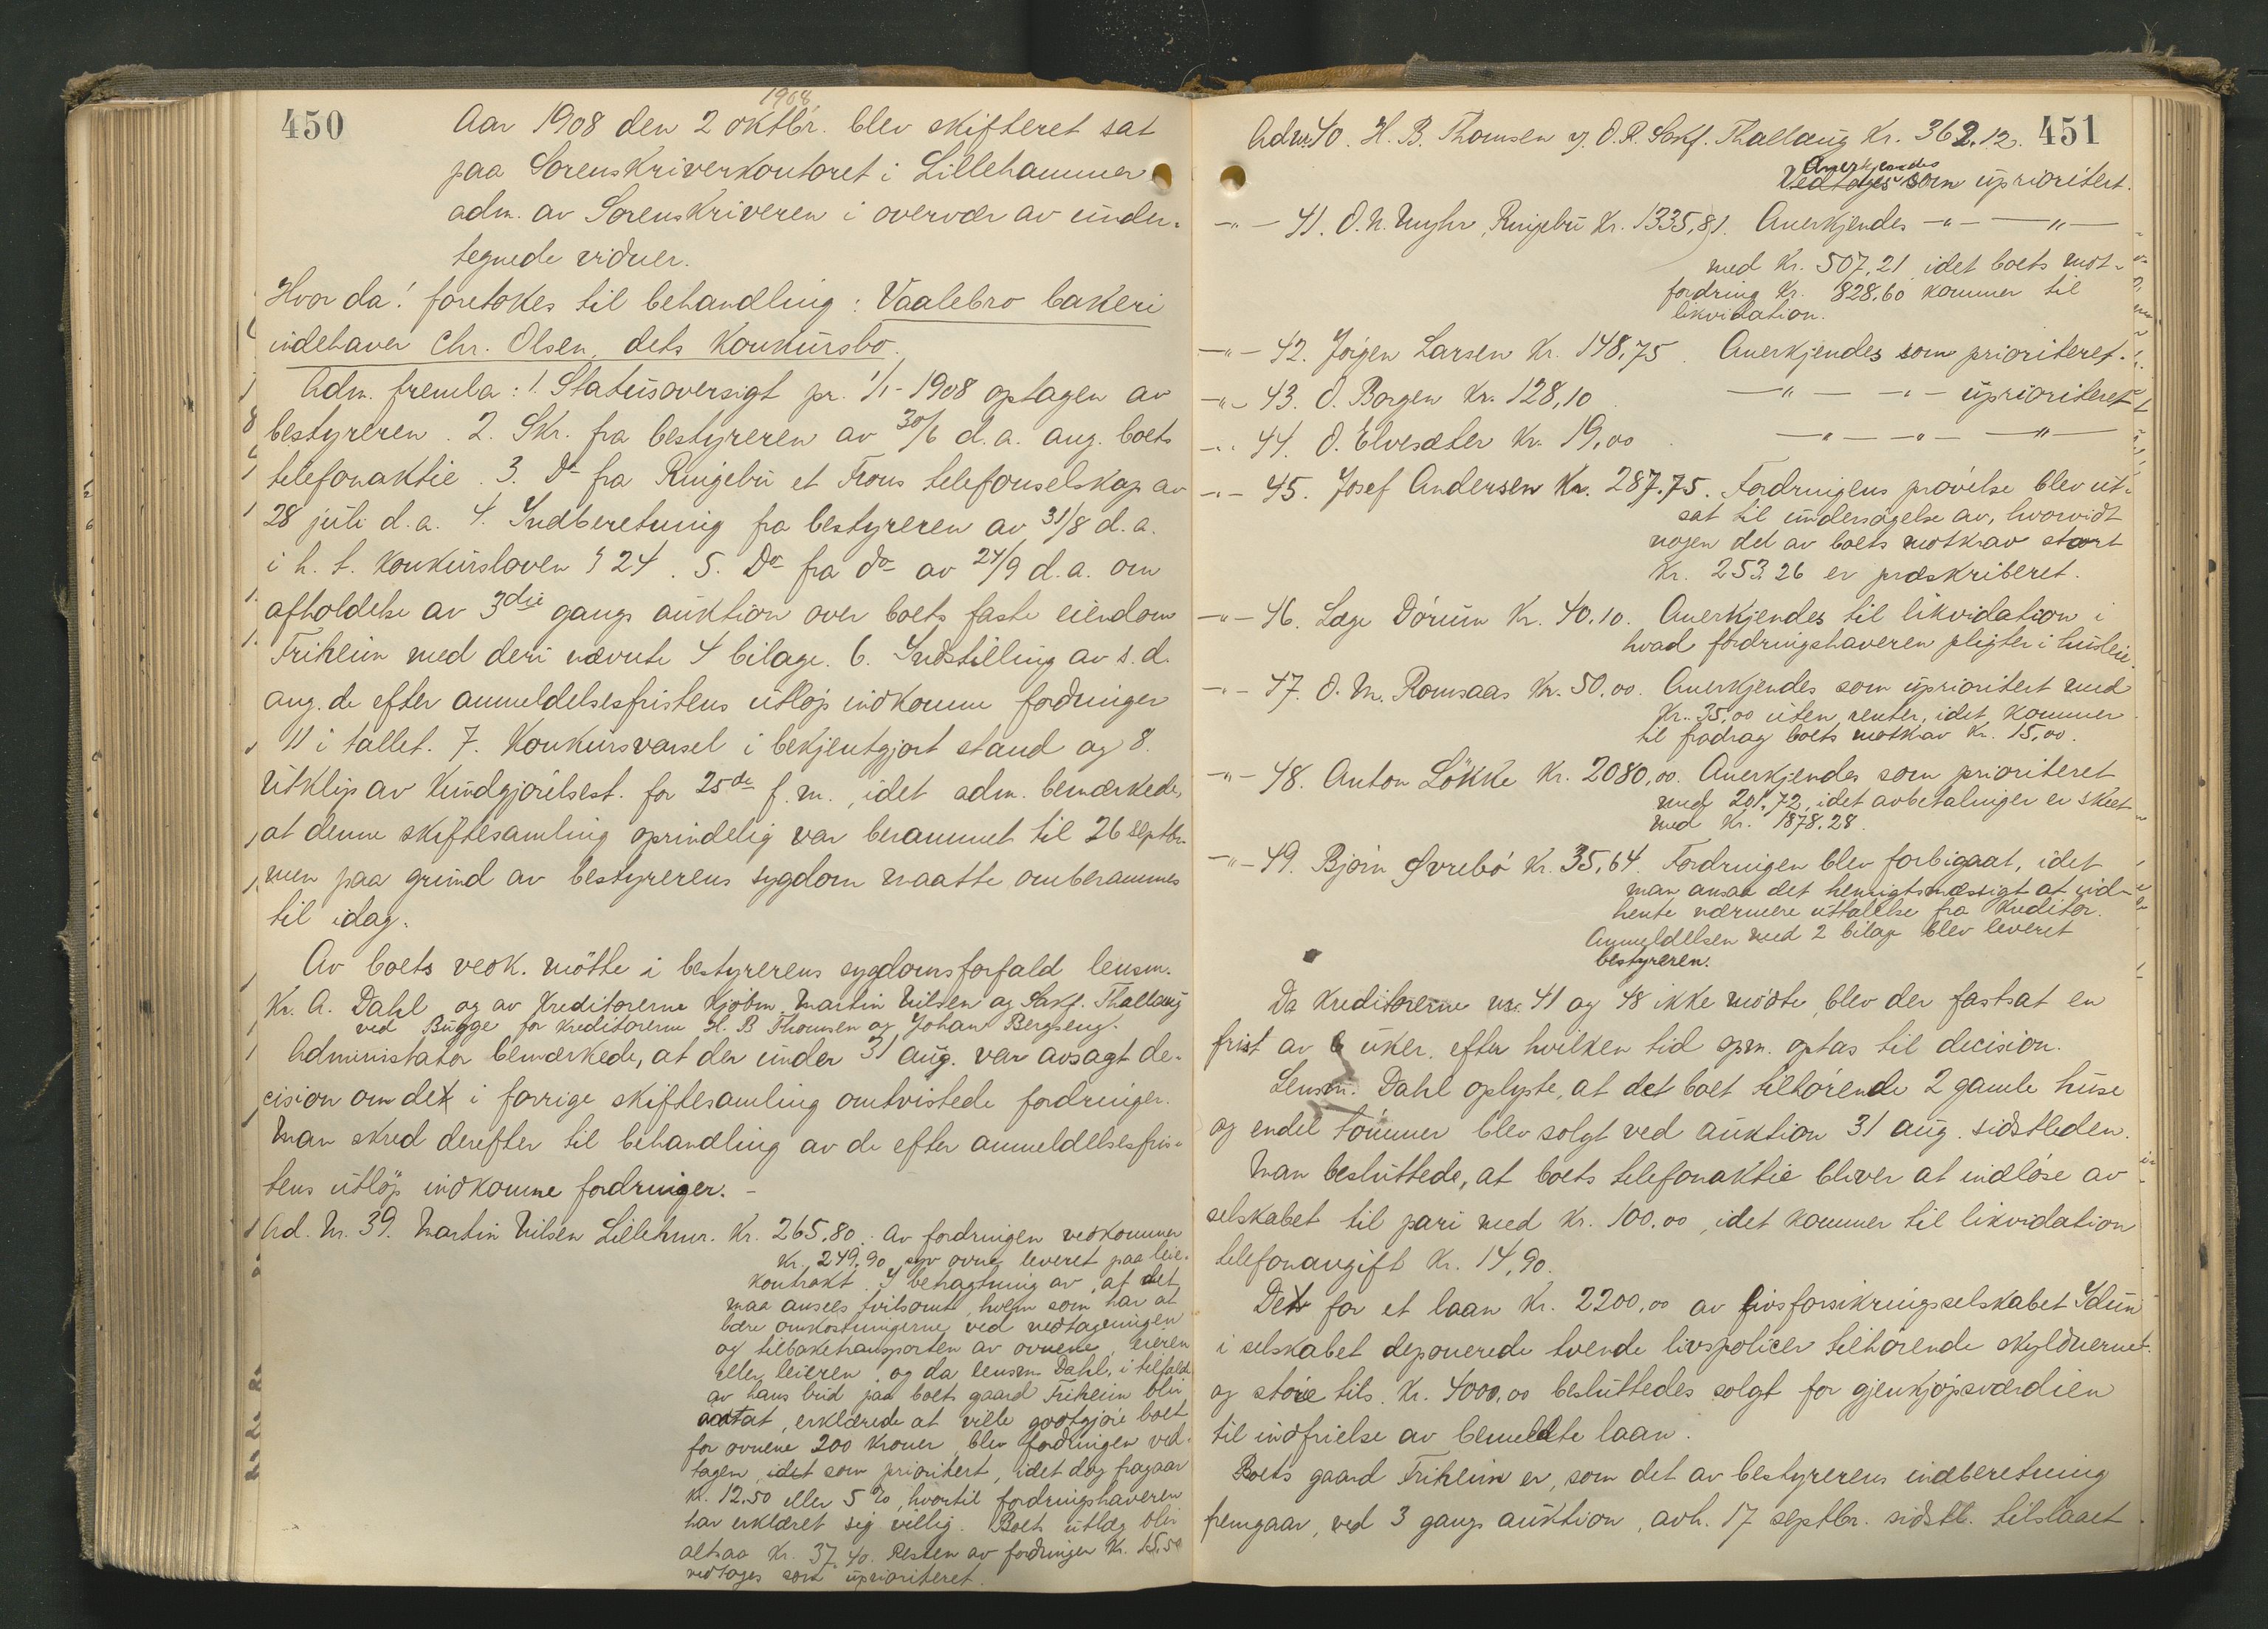 450
1908.
Aar 1908 den 2 oktbr. blev skifteret sat
paa Sorenskriverkontoret i Lillehammer
adm. av Sorenskriveren i overvær av under-
tegnede vidner.
Hvor da! foretokes til behandling: Vaalebro bakeri
indehaver Chr. Olsen, dets konkursbo.
Adm. fremla: 1. Statusoversigt pr. 1/1-1908 optagen av
bestyreren. 2. Skr. fra bestyreren av 30/6 d.a. ang. boets
telefonaktie. 3. Do fra Ringebu et Frons telefonselskap av
28 juli d.a. 4. Indberetning fra bestyreren av 31/8 d.a.
i h. t. konkursloven § 24. 5. Do fra do av 24/9 d.a. om
afholdelse av 3die gangs auktion over boets faste eiendom
Friheim med deri nævnte 4 bilage. 6. Indstilling av s.d.
ang. de efter anmeldelsesfristens utløp indkomne fordringer
11 i tallet. 7. Konkursvarsel i bekjentgjort stand og 8.
Utklip av Kundgjørelsest. for 25de f. m., idet adm. bemærkede,
at denne skiftesamling oprindelig var berammet til 26 septbr.
men paa grund av bestyrerens sygdom maatte omberammes
til idag.
Av boets vedk. møtte i bestyrerens sygdomsforfald lensm.
Kr. A. Dahl og av kreditorerne kjøbm. Martin Nilsen og Sakf. Thallaug
ved Bugge for kreditorerne H. B Thomsen og Johan Bergseng.
Administrator bemærkede, at der under 31 aug. var avsagt de-
cision om det i forrige skiftesamling omtvistede fordringer.
Man skred derefter til behandling av de efter anmeldelsesfris-
tens utløp indkomne fordringer. -
Ad. Nr. 39. Martin Nilsen Lillehmr. Kr. 265,80. Av fordringen vedkommer
Kr. 249,90 syv ovne leveret paa leie-
kontrakt. I betragtning av, at det
maa ansees tvilsomt, hvem som har at
bære omkostningerne ved nedtagningen
og tilbaketransporten av ovnene, eieren
eller leieren, og da lensm. Dahl, i tilfælde
av hans bud paa boets gaard Friheim blir
antat, erklærede at ville godtgjøre boet
for ovnene 200 kroner, blev fordringen ved-
tagen, idet som prioritert, idet dog fragaar
Kr. 12.50 eller 5 %, hvortil fordringshaveren
har erklæret sig villig. Boets utlæg blir
altsaa Kr. 37.40. Resten av fordringen Kr. 15.90
vedtages som uprioriteret.
451
Ad nr. 40. H. B. Thomsen v. O.R. Sakf. Thallaug Kr. 362.12.
Anerkjendes
Vedtages som uprioritert.
-"- 41. O. N. Myhr, Ringebu Kr. 1335,81. Anerkjendes -"- -"-
med Kr. 507,21 idet boets mot-
fordring Kr. 828,60 kommer til
likvidation.
-"- 42. Jørgen Larsen Kr. 148,75. Anerkjendes som prioriteret.
-"- 43. O. Borgen Kr. 128,10. -"- -"- uprioriteret
-"- 44. O. Elvesæter Kr. 19,00. -"- -"- -"-
-"- 45. Josef Andersen Kr. 287.75. Fordringens prøvelse blev ut-
sat til undersøgelse av, hvorvidt
nogen del av boets motkrav stort
Kr. 253.26 er præskriberet.
-"- 46. Læge Dørum Kr. 40.10. Anerkjendes til likvidation i
hvad fordringshaveren pligter i husleie.
-"- 47. O. M. Romsaas Kr. 50,00. Anerkjendes som uprioritert med
Kr. 35,00 uten renter, idet kommer
til fradrag boets motkrav Kr. 15,00.
-"- 48. Anton Løkke Kr. 2080,00. Anerkjendes som prioriteret
med 201.72, idet avbetalinger er skeet
med Kr. 1878.28.
-"- 49. Bjørn Øvrebø Kr. 35,64. Fordringen blev forbigaat, idet
man ansaa det hensigtsmæssigt at ind-
hente nærmere uttalelse fra kreditor.
Anmeldelsen med 2 bilage blev leveret
bestyreren.
Da kreditorerne nr. 41 og 48 ikke mødte, blev der fastsat en
frist av 6 uker. efter hvilken tid spm. optas til decision.
Lensm. Dahl oplyste, at det boet tilhørende 2 gamle huse
og endel tømmer blev solgt ved auktion 31 aug. sidstleden.
Man besluttede, at boets telefonaktie bliver at indløse av
selskabet til pari med Kr. 100.00, idet kommer til likvidation
telefonavgift Kr. 14,90.
Det for et laan Kr. 2200,00 av livsforsikringsselskabet Idun
i selskabet deponerede tvende livspolicer tilhørende skyldneren
og store tils. Kr. 4000,00 besluttedes solgt for gjenkjøpsværdien
til indfrielse av bemeldte laan.
Boets gaard Friheim er, som det av bestyrerens indberetning
fremgaar, ved 3 gangs auktion, avh. 17 septbr. sidstl. tilslaaet